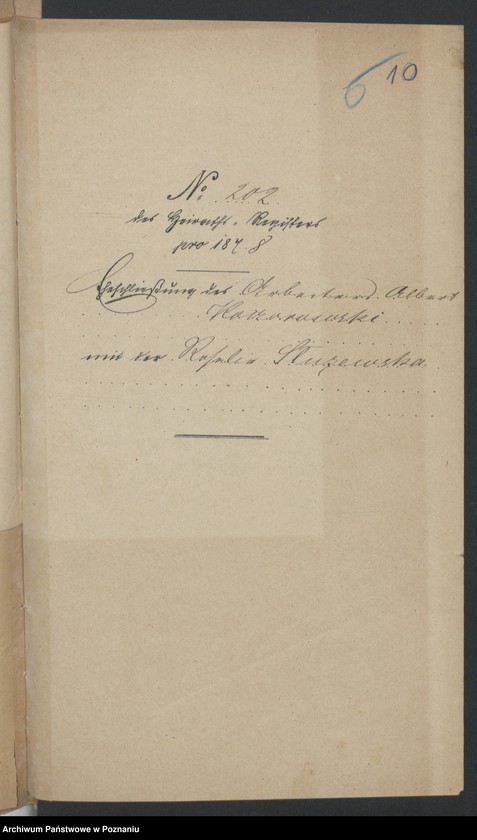 6 10
No 202
des Heiraths-Registers
pro 1878
Eheschließung des Arbeiters Albert
mit der Rosalie
Archiwum Państwowe w Poznaniu